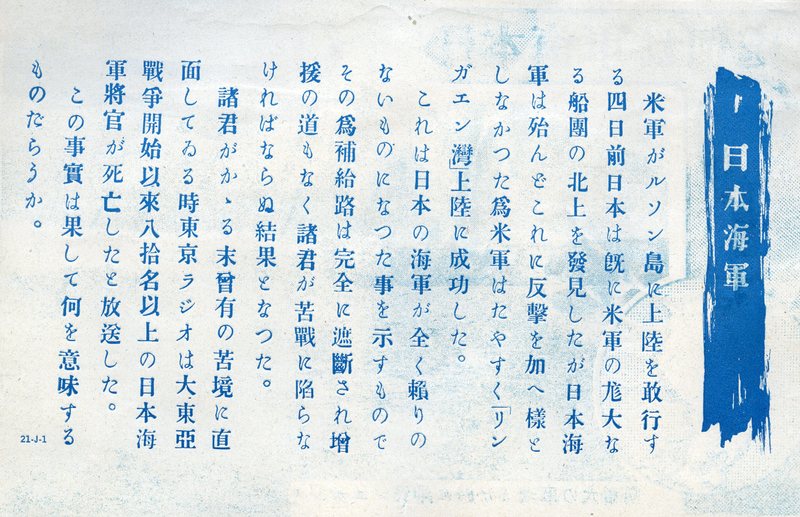 日本海軍
米軍がルソン島に上陸を敢行す
る四日前日本は既に米軍の尨大な
る船團の北上を發見したが日本海
軍は殆んどこれに反擊を加へ樣と
しなかつた爲米軍はたやすく「リン
ガエン灣」上陸に成功した。
これは日本の海軍が全く賴りの
ないものになつた事を示すもので
その爲補給路は完全に遮斷され增
援の道もなく諸君が苦戰に陷らな
ければならぬ結果となつた。
諸君がかゝる末曾有の苦境に直
面してゐる時東京ラジオは大東亞
戰爭開始以來八拾名以上の日本海
軍將官が死亡したと放送した。
この事實は果して何を意味する
ものだらうか。
21-J-1